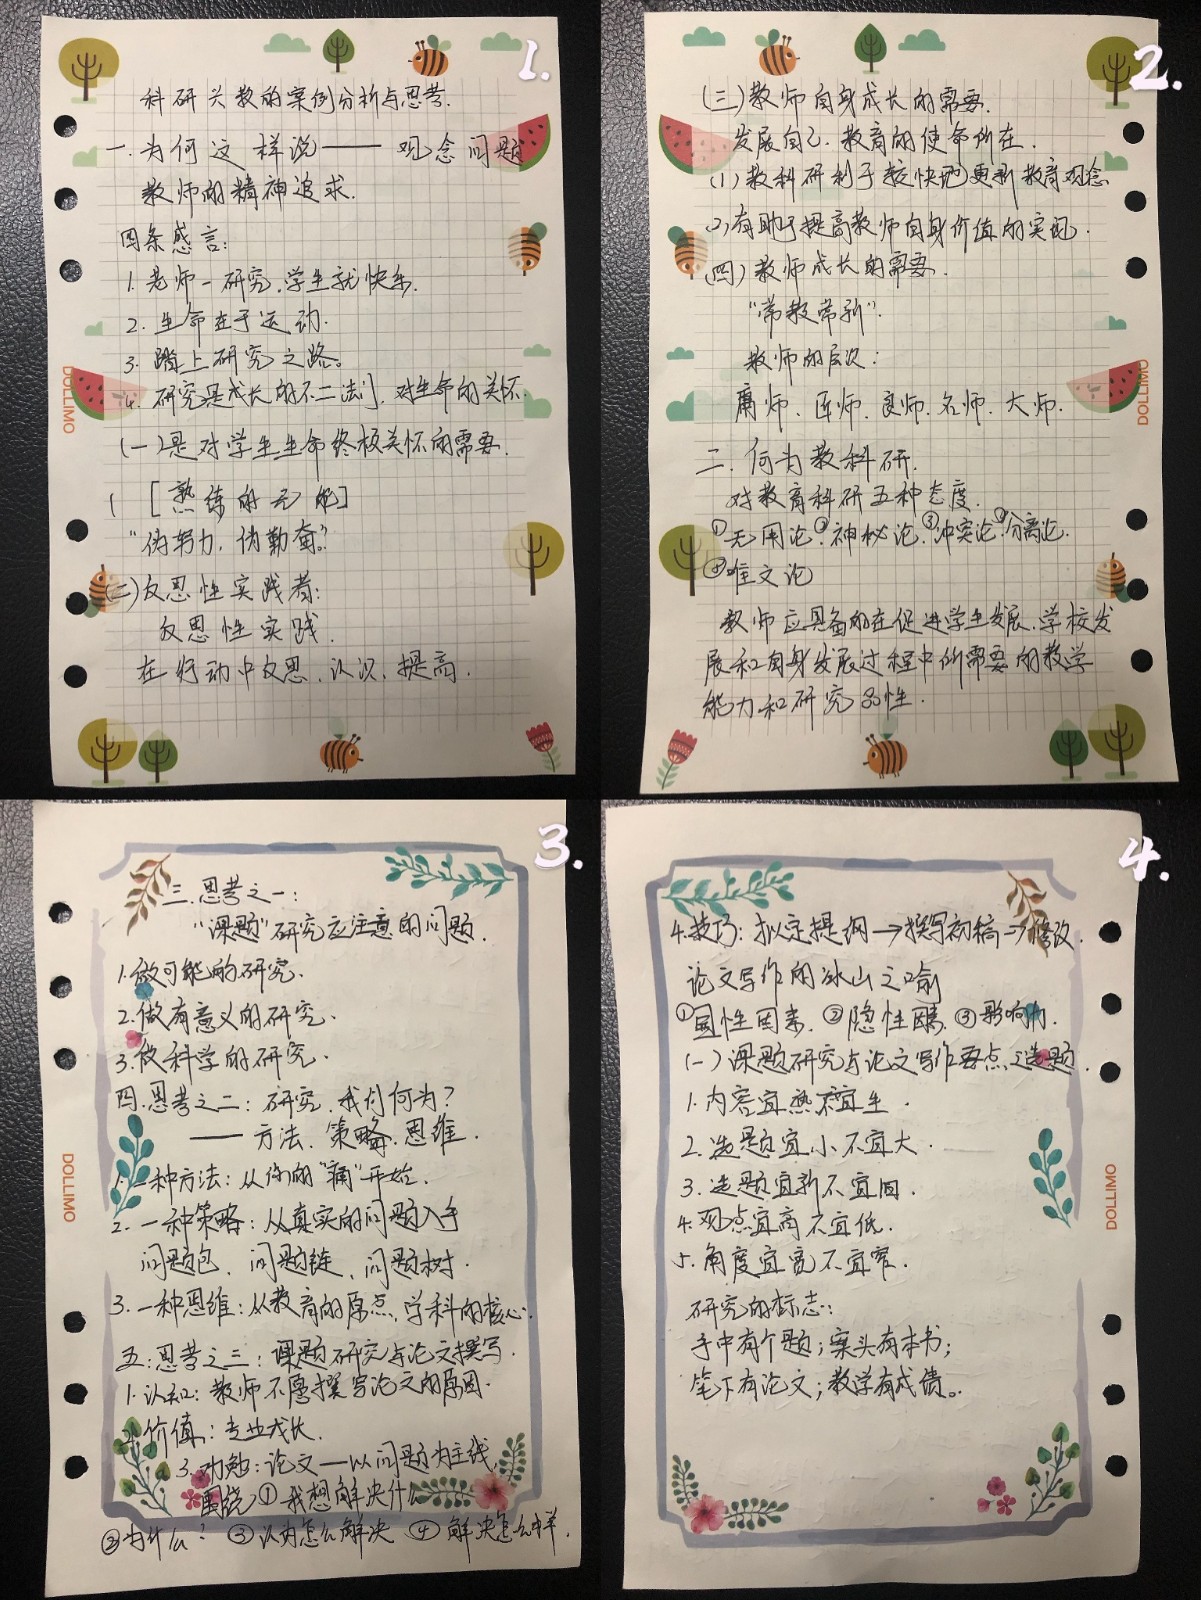 1.
科研兴教的案例分析与思考.
一.为何这样说——观念问题
教师的精神追求.
四条感言:
1.老师一研究,学生就快乐.
2.生命在于运动.
3.踏上研究之路。
4.研究是成长的不二法门,对生命的关怀.
(一)是对学生生命终极关怀的需要.
[熟练的无能]
"伪努力,伪勤奋?
(二)反思性实践者:
反思性实践.
在行动中反思、认识、提高.
DOLLIMO
2.
(三)教师自身成长的需要.
发展自己.教育的使命所在.
(1)教科研利于较快地更新教育观念
(2)有助于提高教师自身价值的实现.
(四)教师成长的需要.
"常教常新".
教师的层次:
庸师、匠师、良师、名师、大师.
二.何为教科研.
对教育科研五种态度.
①无用论.②神秘论.③冲突论.④分离论.
⑤唯文论
教师应具备的在促进学生发展,学校发
展和自身发展过程中所需要的教学
能力和研究品性.
DOLLIMO
3.
三.思考之一:
"课题"研究应注意的问题.
1.做可能的研究.
2.做有意义的研究.
3.做科学的研究.
四.思考之二:研究,我们何为?
——方法、策略、思维.
1.一种方法:从你的"痛"开始.
2.一种策略:从真实的问题入手
问题包、问题链、问题树.
3.一种思维:从教育的原点,学科的核心.
五:思考之三:课题研究与论文撰写.
1.认知:教师不愿撰写论文的原因.
2.价值:专业成长.
3.功勉:论文—以问题为主线,
围绕①我想解决什么
②为什么?③认为怎么解决 ④解决怎么样.
DOLLIMO
4.
4.技巧:拟定提纲→撰写初稿→修改.
论文写作的冰山之喻
①显性因素.②隐性因素.③影响力.
(一)课题研究与论文写作要点之选题.
1.内容宜熟不宜生.
2.选题宜小不宜大.
3.选题宜新不宜旧.
4.观点宜高不宜低.
5.角度宜宽不宜窄.
研究的标志:
手中有个题;案头有本书;
笔下有论文;教学有成绩。
DOLLIMO